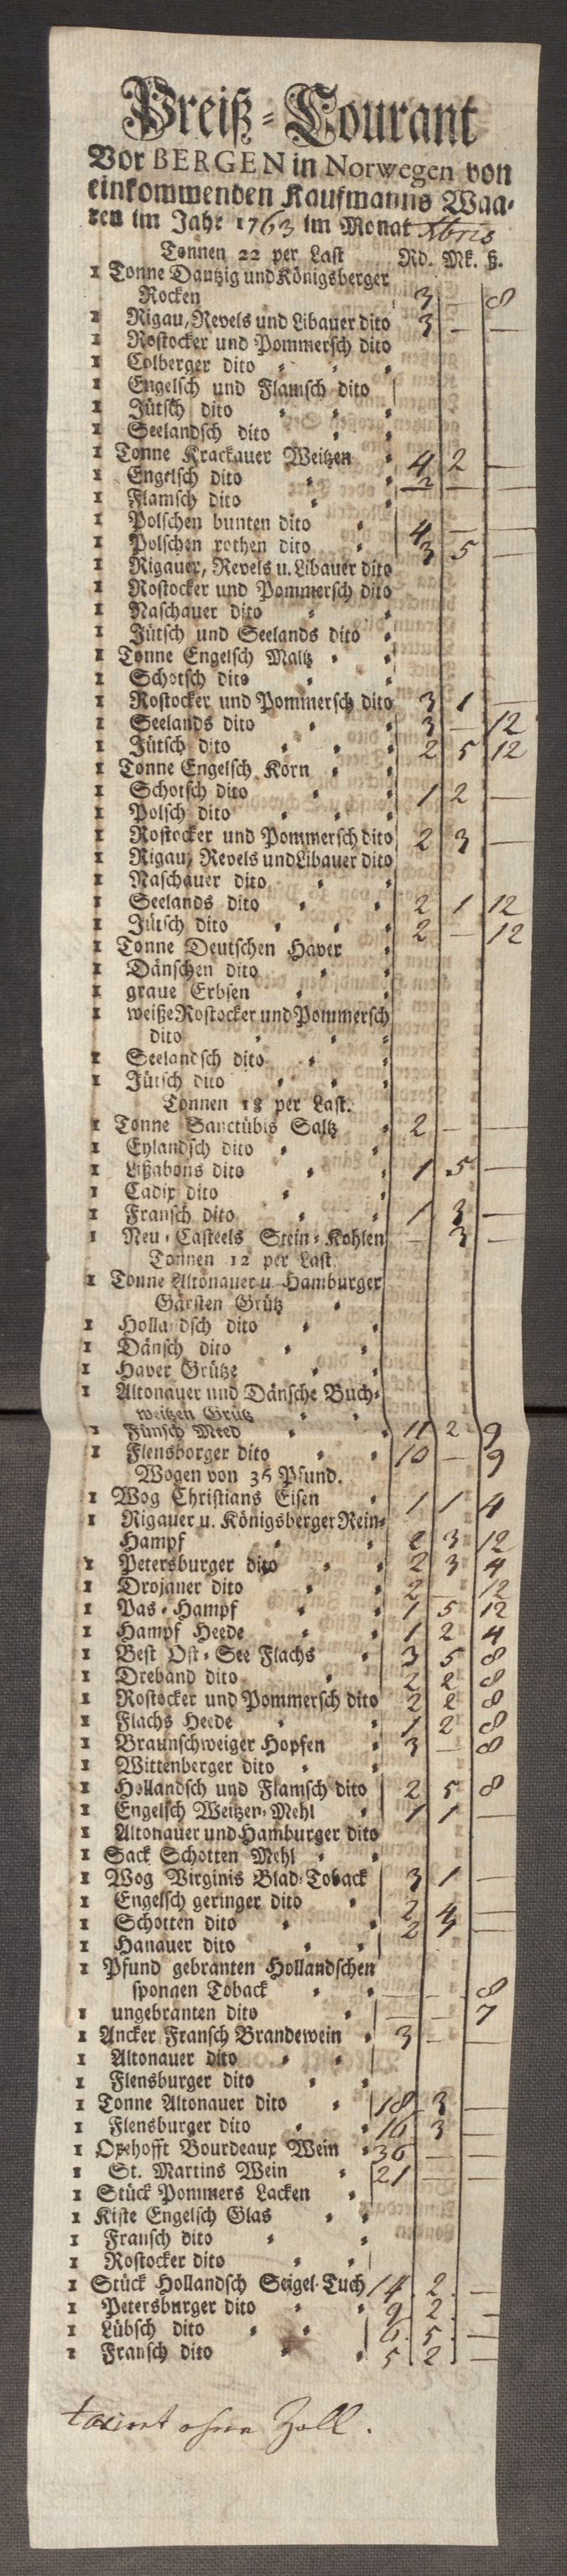 Preiß-Courant
Vor BERGEN in Norwegen von
einkommenden Kaufmanns Waa-
ren im Jahr 1763 im Monat Xbris
Tonnen 22 per Last Rd. Mk. ß.
1 Tonne Dantzig und Königsberger
Rocken 3 — 8
1 Rigau, Revels und Libauer dito 3 — —
1 Rostocker und Pommersch dito
1 Colberger dito
1 Engelsch und Flamsch dito
1 Jütsch dito
1 Seelandsch dito
1 Tonne Krackauer Weitzen 4 2 —
1 Engelsch dito — —
1 Flamsch dito
1 Polschen bunten dito 4 — —
1 Polschen rothen dito 3 5 —
1 Rigauer, Revels u. Libauer dito
1 Rostocker und Pommersch dito
1 Naschauer dito
1 Jütsch und Seelands dito
1 Tonne Engelsch Maltz
1 Schotsch dito
1 Rostocker und Pommersch dito 3 1 —
1 Seelands dito 3 — 12
1 Jütsch dito 2 5 12
1 Tonne Engelsch Korn
1 Schotsch dito 1 2 —
1 Polsch dito
1 Rostocker und Pommersch dito 2 3 —
1 Rigau, Revels und Libauer dito
1 Naschauer dito
1 Seelands dito 2 1 12
1 Jütsch dito 2 — 12
1 Tonne Deutschen Haver
1 Dänschen dito
1 graue Erbsen
1 weiße Rostocker und Pommersch
dito
1 Seelandsch dito
1 Jütsch dito
Tonnen 18 per Last.
1 Tonne Sanctübis Saltz 2 — —
1 Eylandsch dito
1 Lißabons dito 1 5 —
1 Cadix dito
1 Fransch dito 1 3 —
1 Neu-Casteels Stein-Kohlen — 3 —
Tonnen 12 per Last.
1 Tonne Altonauer u. Hamburger
Gärsten Grütz
1 Hollandsch dito
1 Dänsch dito
1 Haver Grütze
1 Altonauer und Dänsche Buch-
weitzen Grütz
1 Fünsch Meed 11 2 9
1 Flensborger dito 10 — 9
Wogen von 36 Pfund.
1 Wog Christians Eisen 1 1 4
1 Rigauer u. Königsberger Rein-
Hampf 2 3 12
1 Petersburger dito 2 3 4
1 Drojaner dito 2 — 12
1 Pas-Hampf 1 5 12
1 Hampf Heede 1 2 4
1 Best Ost-See Flachs 3 5 8
1 Dreband dito 2 2 8
1 Rostocker und Pommersch dito 2 2 8
1 Flachs Heede 1 2 8
1 Braunschweiger Hopfen 3 — 8
1 Wittenberger dito
1 Hollandsch und Flamsch dito 2 5 8
1 Engelsch Weitzen-Mehl 1 1 —
1 Altonauer und Hamburger dito
1 Sack Schotten Mehl
1 Wog Virginis Blad-Toback 3 1 —
1 Engelsch geringer dito 2 4 —
1 Schotten dito 2 —
1 Hanauer dito
1 Pfund gebranten Hollandschen
sponnen Toback — — 8
1 ungebranten dito — — 7
1 Ancker Fransch Brandewein 3 — —
1 Altonauer dito
1 Flensburger dito
1 Tonne Altonauer dito 18 3 —
1 Flensburger dito 16 3 —
1 Oxehofft Bourdeaux Wein 36 — —
1 St. Martins Wein 21 — —
1 Stück Pommers Lacken
1 Kiste Engelsch Glas
1 Fransch dito
1 Rostocker dito
1 Stück Hollandsch Seigel-Tuch 14 2 —
1 Petersburger dito 9 2 —
1 Lübsch dito 6 5 —
1 Fransch dito 5 2 —
ohne Zoll.